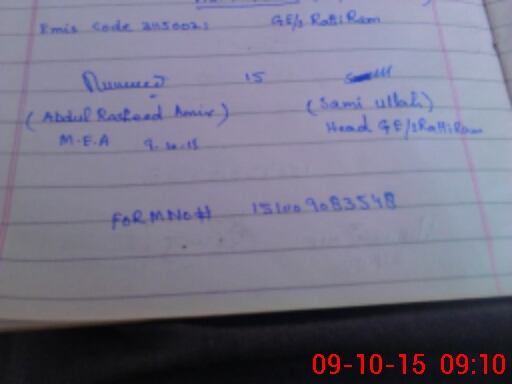 Emis Code 2115002: GE/s Ratti Ram
15
(Abdul Rasheed Amir) (Sami ullah)
M.E.A 9.10.15 Head GE/s Ratti Ram
FORM NO# 151009083548
09-10-15 09:10